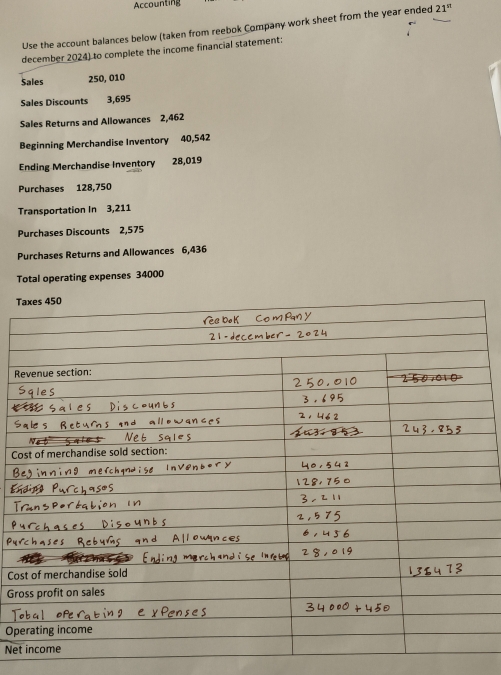 Accounting
Use the account balances below (taken from reebok Company work sheet from the year ended 21st
december 2024) to complete the income financial statement:
Sales 250, 010
Sales Discounts 3,695
Sales Returns and Allowances 2,462
Beginning Merchandise Inventory 40,542
Ending Merchandise Inventory 28,019
Purchases 128,750
Transportation In 3,211
Purchases Discounts 2,575
Purchases Returns and Allowances 6,436
Total operating expenses 34000
Taxes 450
reebok Company
21-december-2024
Revenue section:
Sales 250.010 250.010
Sales Discounts 3.695
Sales Returns and allowances 2.462
Net sales Net sales 243.853 243.853
Cost of merchandise sold section:
Beginning merchandise Inventory 40.542
Ending Purchases 128.750
Transportation in 3.211
Purchases Disounts 2,575
Purchases Returns and Allowances 6.436
Ending merchandise 28.019
Cost of merchandise sold
Gross profit on sales
Total operating expenses 34000 + 450
Operating income
Net income